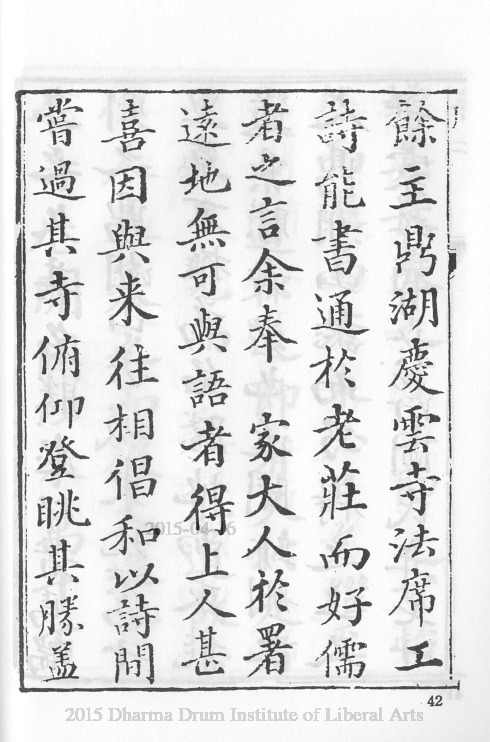 餘主鼎湖慶雲寺法席工
詩能書通於老莊而好儒
者之言余奉　家大人於署
遠地無可與語者得上人甚
喜因與来往相倡和以詩間
嘗過其寺俯仰登眺其勝盖
42
2015-04-16
2015 Dharma Drum Institute of Liberal Arts